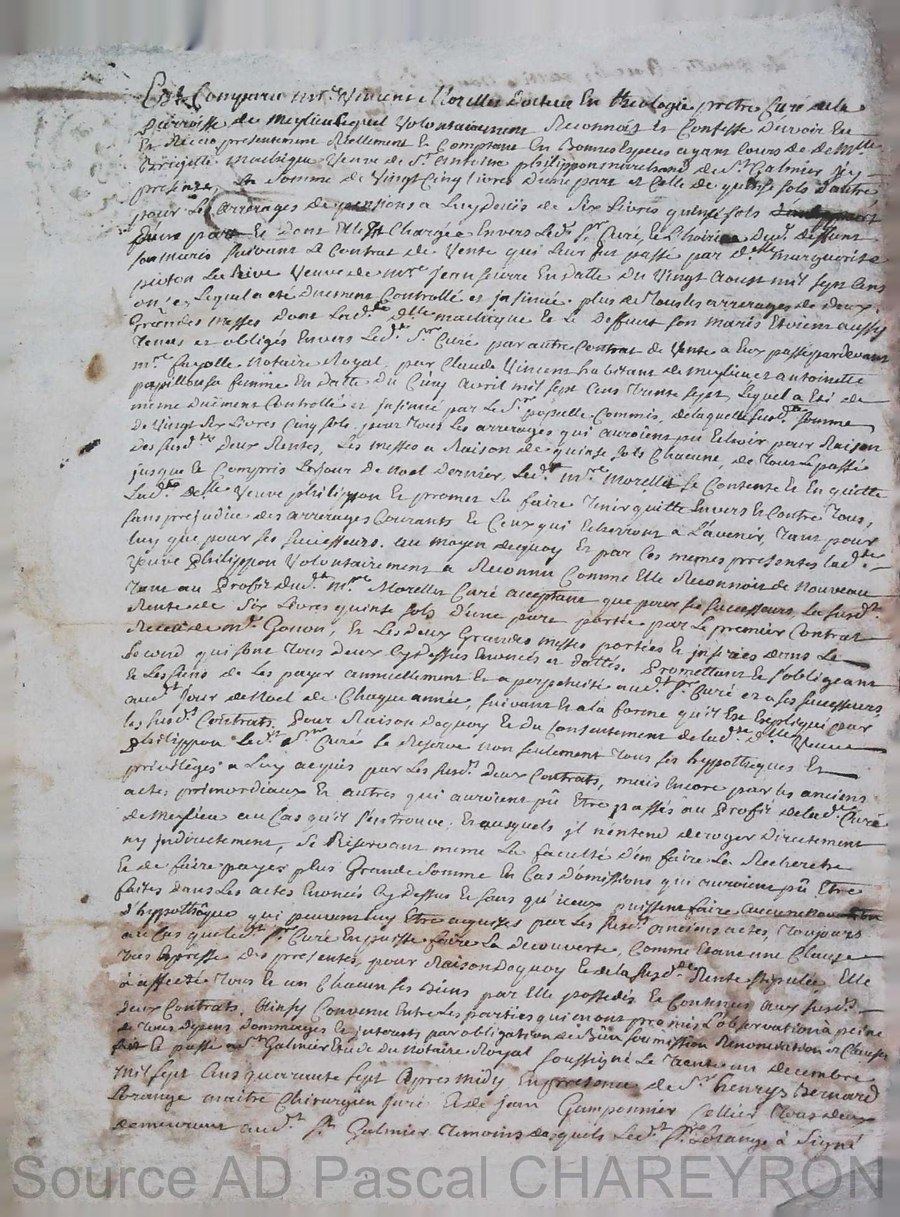 Est Comparu mre Vincent Morellet Docteur En theologie pretre Curé de la
parroisse de meylieu Lequel Volontairement Reconnois Et Confesse Devoir En
En Receu presentement Reellement Et Comptant En Bonnes Especes ayant Cours de de Mlle
Brigitte madrique Veuve de Sr antoine philippon marchand de St Galmier jcy
presente, La Somme de Vingt Cinq livres D'une part et Celle de quinze sols d'autre
pour Les arrerages de pensions a Luy Deüs de Six Livres quinze sols
D'une part Et Dont Elle Est Chargée Envers Ledt Sr Curé, Et L'hoirie Dudt Deffunt
son maris suivant Le Contrat de Vente qui Leur fut passé par Dlle marguerite
Veuve de mre Jean pierre En datte Du Vingt aoust mil sept Cens
onze, Lequel a eté Duement Controllé et jnsinué plus de tous les arrerages de deux
Grandes messes Dont Ladte Dlle madrique Et Le Deffunt son maris Etoient aussy
tenus et obligés Envers Ledt Sr Curé par autre Contrat de Vente a Eux passé pardevant
mre fayolle Notaire Royal, par Claude Vincent habitant de meylieu et antoinette
papillon sa femme En datte Du Cinq avril mil sept Cens trente sept, Lequel a Eté de
meme Duement Controllé et jnsinué par Le Sr Commis, de laquelle susdte somme
de Vingt six Livres Cinq sols, pour tous Les arrerages qui auroient pu Echoir pour Raison
Des susdtes Deux Rentes, Les messes a Raison de quinze sols Chacune, de tout Le passé
jusques Et Compris Le jour de Noel Dernier, Ledt mre Morellet Se Contente Et En quitte
Ladte Delle Veuve philippon Et promet La faire tenir quitte Envers Et Contre tous,
sans prejudice des arrerages Courants Et Ceux qui Echerront a L'avenir, tant pour
luy que pour ses successeurs. au moyen dequoy Et par Ces memes presentes Ladte
Veuve philippon Volontairement a Reconnu Comme Elle Reconnois de Nouveau
tant au Profit Dudt mre Morellet Curé acceptant que pour ses successeurs La susdte
Rente de Six Livres quinze sols d'une part portée par Le premier Contrat
Receu de mre Gonon, Et Les Deux Grandes messes portées Et jnserées dans Le
second qui sont tous deux Cydessus Enoncés et dattés. Promettant Et s'obligeant
Et Les siens de Les payer annuellement Et a perpetuité audt Sr Curé et a ses successeurs
audt Jour de Noel de Chaque année, suivant Et a la forme qu'il Est Expliqué par
les susdts Contrats. Pour Raison Dequoy Et du Consentement de ladte Dlle Veuve
philippon Ledt Sr Curé se Reserve non seulement tous ses hypotheques Et
privileges a Luy acquis par Les susdts deux Contrats, mais Encore par les anciens
actes primordiaux Et autres qui auroient pû Etre passés au Profit de Ledt Curé
de Meylieu au Cas qu'il s'en trouve. Et ausquels jl n'entend deroger Directement
ny jndirectement, Se Reservant meme La faculté D'en faire La Recherche
Et de faire payer plus Grande Somme En Cas D'omissions qui auroient pû Etre
faites dans Les actes Enoncés Cy dessus Et sans qu'iceux puissent faire aucune Novation
D'hypothêque qui peuvent luy Etre acquises par Les susdts anciens actes, toujours
au Cas que Ledt Sr Curé En puisse faire La Decouverte, Comme Etant une Clause
tres Expresse des presentes, pour Raison Dequoy Et de la susdte Rente stipulée Elle
a affecté tous Et un Chacun ses Biens par Elle possedés Et Contenus aux susdts
deux Contrats. Ainsy Convenu Entre Les parties qui En ont promis L'observation a peine
de tous Depens Dommages Et jnterests par obligation de Bien soumission Renonciation et Clauses
fait Et passé a St Galmier Etude du Notaire Royal soussigné Le trente un decembre
mil sept Cens quarante sept apres midy En presence de Sr henrys Bernard
Lorange maitre Chirurgien juré Et de jean Gamponnier sellier tous deux
demeurant audt St Galmier temoins desquels Ledt Sr Lorange a signé
Source AD Pascal CHAREYRON